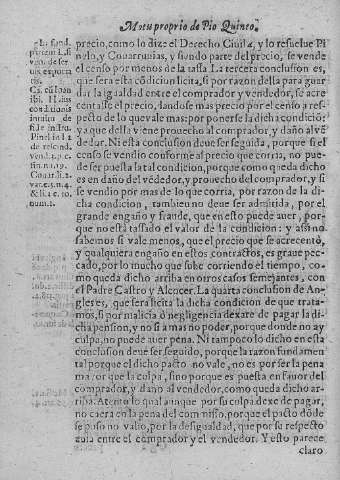 Motu proprio de Pio Quinto.
precio, como lo dize el Derecho Ciuil 4, y lo resuelue Pi
nelo, y Couarruuias, y siendo parte del precio, se vende
el censo por menos de la tassa La tercera conclusion es,
que sera esta cõdicion licita, si por razon della para guar
dar la igualdad entre el comprador y vendedor, se acre
centasse el precio, dandose mas precio por el censo a res-
pecto de lo que vale mas: por ponerse la dicha condiciõ:
ya que della viene prouecho al comprador, y daño al vẽ
dedor. Ni esta conclusion deue ser seguida, porque si el
censo se vendio conforme al precio que corria, no pue-
de ser puesta la tal condicion, porque como queda dicho
es en daño del vẽdedor, y prouecho del comprador, y si
se vendio por mas de lo que corria, por razon de la di-
cha condicion, tambien no deue ser admitida, por el
grande engaño y fraude, que en esto puede auer, por-
que no està tassado el valor de la condicion: y assi no
sabemos si vale menos, que el precio que se acrecentò,
y qualquiera engaño en estos contractos, es graue pec-
cado, por lo mucho que sube corriendo el tiempo, co-
mo queda dicho arriba en otros casos semejantes, con
el Padre Castro y Alcocer. La quarta conclusion de An-
gles es, que sera licita la dicha condicion de que trata-
mos, si por malicia ò negligencia dexare de pagar la di-
cha pension, y no si a mas no poder, porque donde no ay
culpa, no puede auer pena. Ni tampoco lo dicho en esta
conclusion deue ser seguido, porque la razon fundamen
tal porque el dicho pacto no vale, no es por ser la pena
mayor que la culpa, sino porque es puesta en fauor del
comprador, y daño al vendedor, como queda dicho ar-
riba. Atento lo qual aunque por su culpa dexe de pagar,
no caera en la pena del comisso, porque el pacto dõde
se puso no valio, por la desigualdad, que por su respecto
auia entre el comprador y el vendedor. Y esto parece
claro